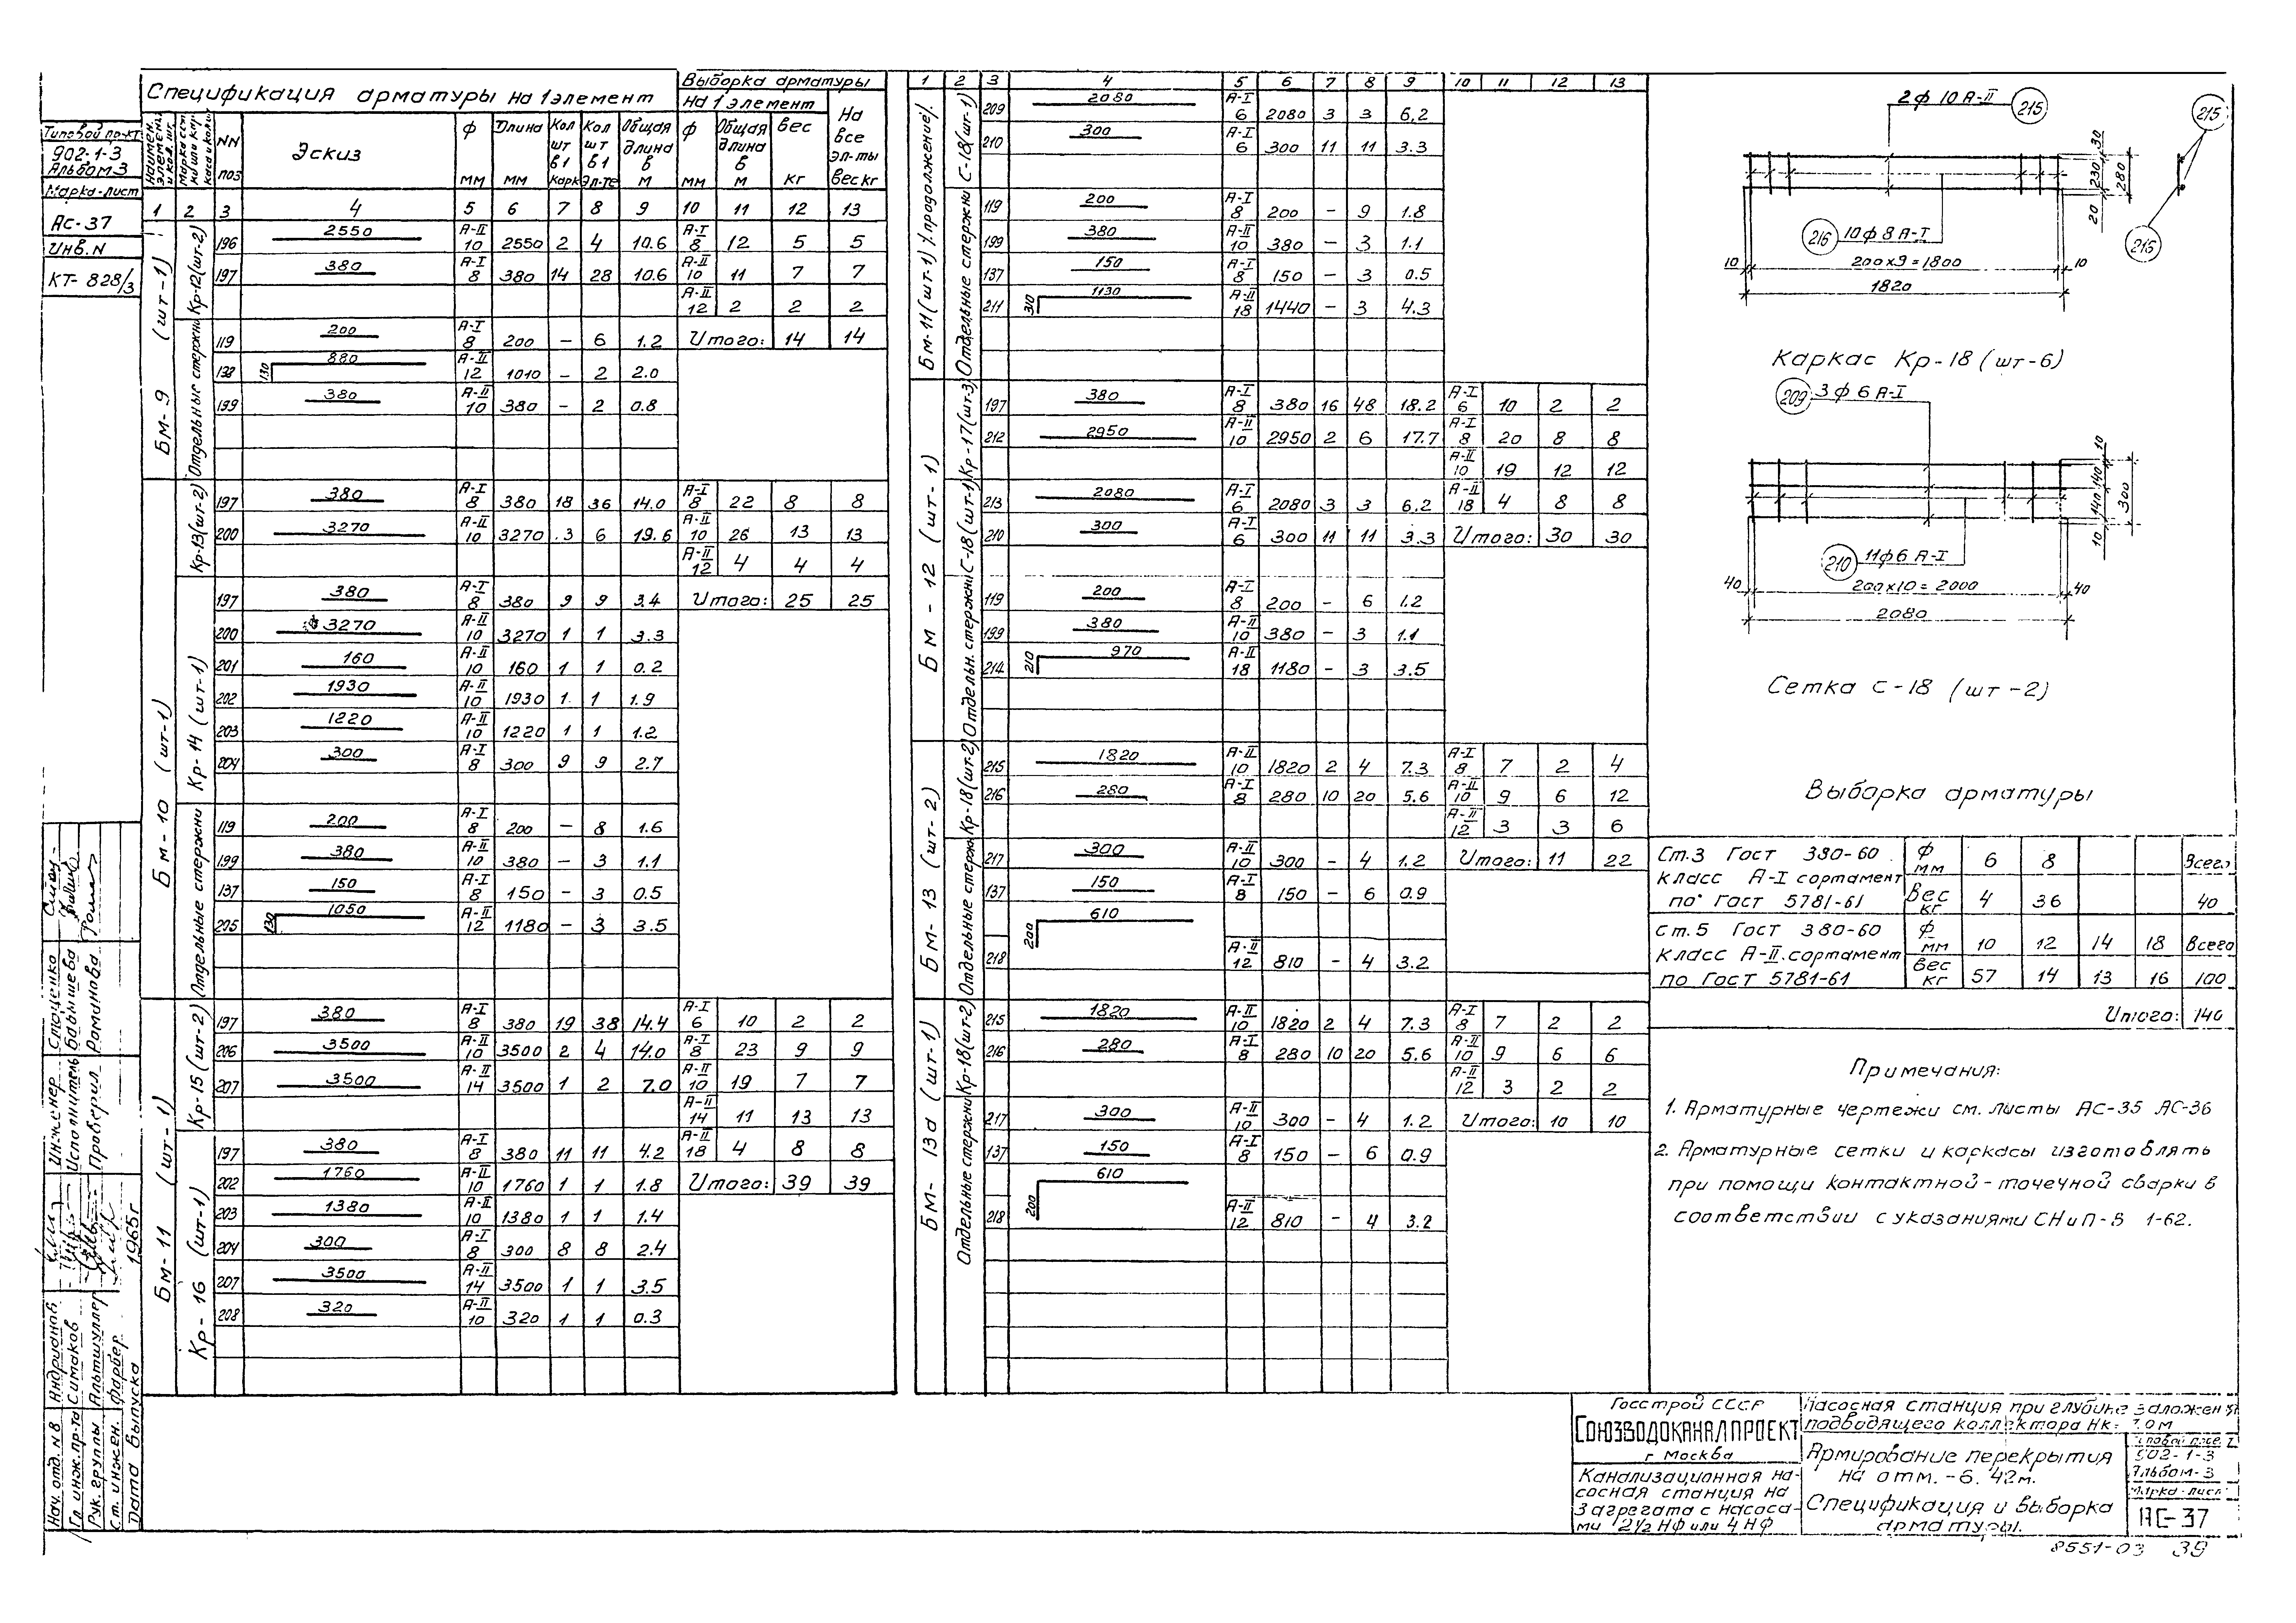 Типовой пр-кт
902-1-3
Альбом 3
Марка-лист
АС-37
Инв. N
КТ-828/3
Спецификация арматуры на 1 элемент
Выборка арматуры
На 1 элемент
На все эл-ты вес кг
NN поз
Эскиз
ф мм
Длина мм
Кол шт в 1 карк
Кол шт в 1 эл-те
Общая длина в м
ф мм
Общая длина в м
вес кг
1 2 3 4 5 6 7 8 9 10 11 12 13
Бм-9 (шт-1)
Кр-12 (шт-2)
196 2550 А-II 10 2550 2 4 10.6 А-I 8 12 5 5
197 380 А-I 8 380 14 28 10.6 А-II 10 11 7 7
А-II 12 2 2 2
Отдельные стержни
119 200 А-I 8 200 – 6 1.2 Итого: 14 14
138 130 880 А-II 12 1010 – 2 2.0
199 380 А-II 10 380 – 2 0.8
Бм-10 (шт-1)
Кр-13 (шт-2)
197 380 А-I 8 380 18 36 14.0 А-I 8 22 8 8
200 3270 А-II 10 3270 3 6 19.6 А-II 10 26 13 13
А-II 12 4 4 4
Кр-14 (шт-1)
197 380 А-I 8 380 9 9 3.4 Итого: 25 25
200 3270 А-II 10 3270 1 1 3.3
201 160 А-II 10 160 1 1 0.2
202 1930 А-II 10 1930 1 1 1.9
203 1220 А-II 10 1220 1 1 1.2
204 300 А-I 8 300 9 9 2.7
Отдельные стержни
119 200 А-I 8 200 – 8 1.6
199 380 А-II 10 380 – 3 1.1
137 150 А-I 8 150 – 3 0.5
205 130 1050 А-II 12 1180 – 3 3.5
Бм-11 (шт-1)
Кр-15 (шт-2)
197 380 А-I 8 380 19 38 14.4 А-I 6 10 2 2
206 3500 А-II 10 3500 2 4 14.0 А-I 8 23 9 9
207 3500 А-II 14 3500 1 2 7.0 А-II 10 19 7 7
А-II 14 11 13 13
Кр-16 (шт-1)
197 380 А-I 8 380 11 11 4.2 А-II 18 4 8 8
202 1760 А-II 10 1760 1 1 1.8 Итого: 39 39
203 1380 А-II 10 1380 1 1 1.4
204 300 А-I 8 300 8 8 2.4
207 3500 А-II 14 3500 1 1 3.5
208 320 А-II 10 320 1 1 0.3
1 2 3 4 5 6 7 8 9 10 11 12 13
Бм-11 (шт-1) /продолжение/.
С-18 (шт-1)
209 2080 А-I 6 2080 3 3 6.2
210 300 А-I 6 300 11 11 3.3
Отдельные стержни
119 200 А-I 8 200 – 9 1.8
199 380 А-II 10 380 – 3 1.1
137 150 А-I 8 150 – 3 0.5
211 310 1130 А-II 18 1440 – 3 4.3
Бм-12 (шт-1)
Кр-17 (шт-3)
197 380 А-I 8 380 16 48 18.2 А-I 6 10 2 2
212 2950 А-II 10 2950 2 6 17.7 А-I 8 20 8 8
А-II 10 19 12 12
С-18 (шт-1)
213 2080 А-I 6 2080 3 3 6.2 А-II 18 4 8 8
210 300 А-I 6 300 11 11 3.3 Итого: 30 30
Отдельн. стержни
119 200 А-I 8 200 – 6 1.2
199 380 А-II 10 380 – 3 1.1
214 210 970 А-II 18 1180 – 3 3.5
Бм-13 (шт-2)
Кр-18 (шт-2)
215 1820 А-II 10 1820 2 4 7.3 А-I 8 7 2 4
216 280 А-I 8 280 10 20 5.6 А-II 10 9 6 12
А-II 12 3 3 6
Отдельные стержн
217 300 А-II 10 300 – 4 1.2 Итого: 11 22
137 150 А-I 8 150 – 6 0.9
218 200 610 А-II 12 810 – 4 3.2
Бм-13а (шт-1)
Кр-18 (шт-2)
215 1820 А-II 10 1820 2 4 7.3 А-I 8 7 2 2
216 280 А-I 8 280 10 20 5.6 А-II 10 9 6 6
А-II 12 3 2 2
Отдельные стержни
217 300 А-II 10 300 – 4 1.2 Итого: 10 10
137 150 А-I 8 150 – 6 0.9
218 200 610 А-II 12 810 – 4 3.2
2ф 10 А-II 215
215
216 10ф 8 А-I
216
30 230 20 280
10 200х9=1800 10
1820
Каркас Кр-18 (шт-6)
209 3ф 6 А-I
10 140 140 10 300
210 11ф6 А-I
40 200х10=2000 40
2080
Сетка С-18 (шт-2)
Выборка арматуры
Ст.3 Гост 380-60 ф мм 6 8 Всего
класс А-I сортамент
по Гост 5781-61 Вес кг 4 36 40
ст.5 Гост 380-60 ф мм 10 12 14 18 Всего
класс А-II.сортамент
по Гост 5781-61 Вес кг 57 14 13 16 100
Итого: 140
Примечания:
1. Арматурные чертежи см. листы АС-35 АС-36
2. Арматурные сетки и каркасы изготовлять
при помощи контактной-точечной сварки в
соответствии с указаниями СНиП-В 1-62.
Госстрой СССР
Союзводоканалпроект
г Москва
Канализационная на-
сосная станция на
3 агрегата с насоса-
ми 2½ НФ или 4 НФ
Насосная станция при глубине заложения
подводящего коллектора Нк=
Армирование перекрытия
на отм. -6.42м.
Спецификация и выборка
арматуры.
902-1-3
Альбом-3
Марка-лист
АС-37
8551-03 39
Инженер Стоценко
Исполнитель Бабышева
Проверил Романова
Нач. отд. N8 Андрианов
Гл инж.пр-та Симаков
Рук. группы Альтшуллер
Ст. инжен. Фарбер
Дата выпуска 1965г